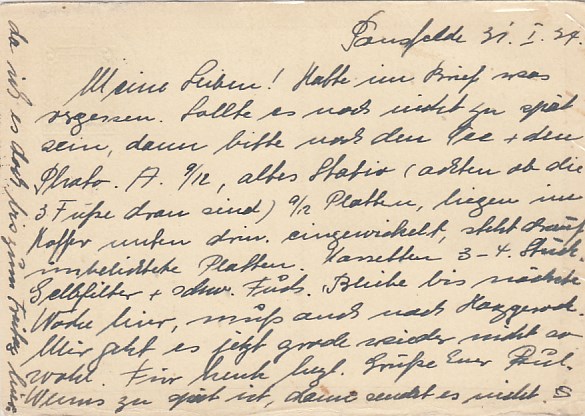 Pansfelde 31. I. 34
Meine Lieben! Hatte im Brief was
vergessen. Sollte es noch nicht zu spät
sein, dann bitte noch den Tee + den
Photo. A. 9/12, altes Stativ (achten ob die
3 Füße dran sind) 9/12 Platten, liegen im
Koffer unten drin. eingewickelt, steht drauf
unbelichtete Platten. Kassetten 3-4. Stück.
Gelbfilter + schw. Bleibe bis nächste
Woche hier, muß auch nach Harzgerode
Mir geht es jetzt grade wieder nicht so
wohl. Für heute hzl. Grüße Euer Paul.
Wenns zu spät ist, dann sendet es nicht.
da ich es doch, bis zum